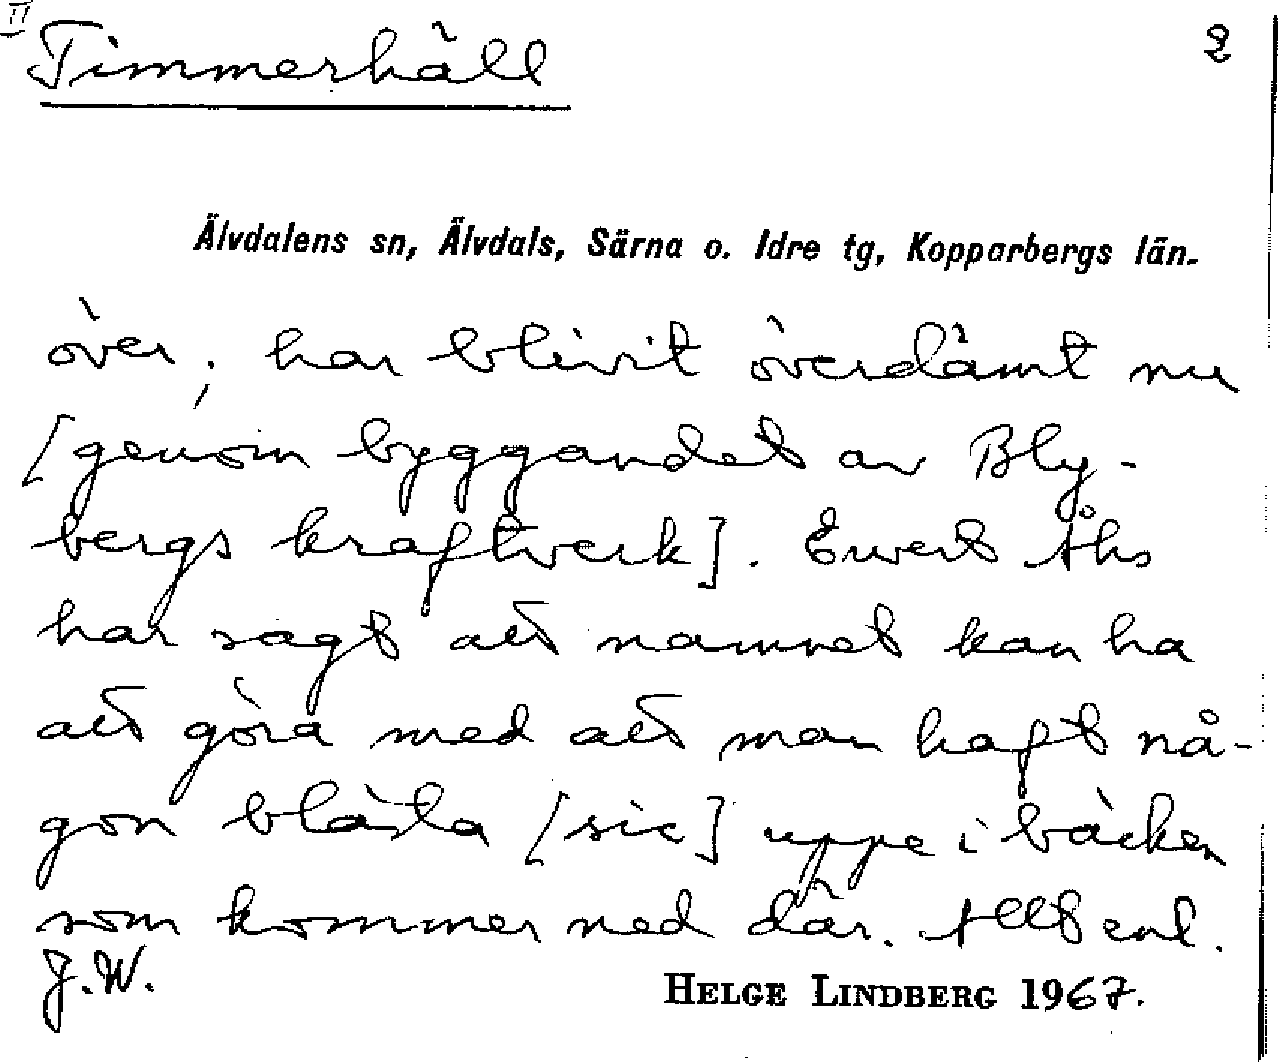 II
Timmerhäll 2
Älvdalens sn, Älvdals, Särna o. Idre tg, Kopparbergs län.
över; har blivit överdämt nu
[genom byggandet av Bly-
bergs kraftverk]. Evert Åhs
har sagt att namnet kan ha
att göra med att man haft nå-
gon blästa [sic] uppe i bäcken
som kommer ned där. Allt enl.
J.W.
HELGE LINDBERG 1967.